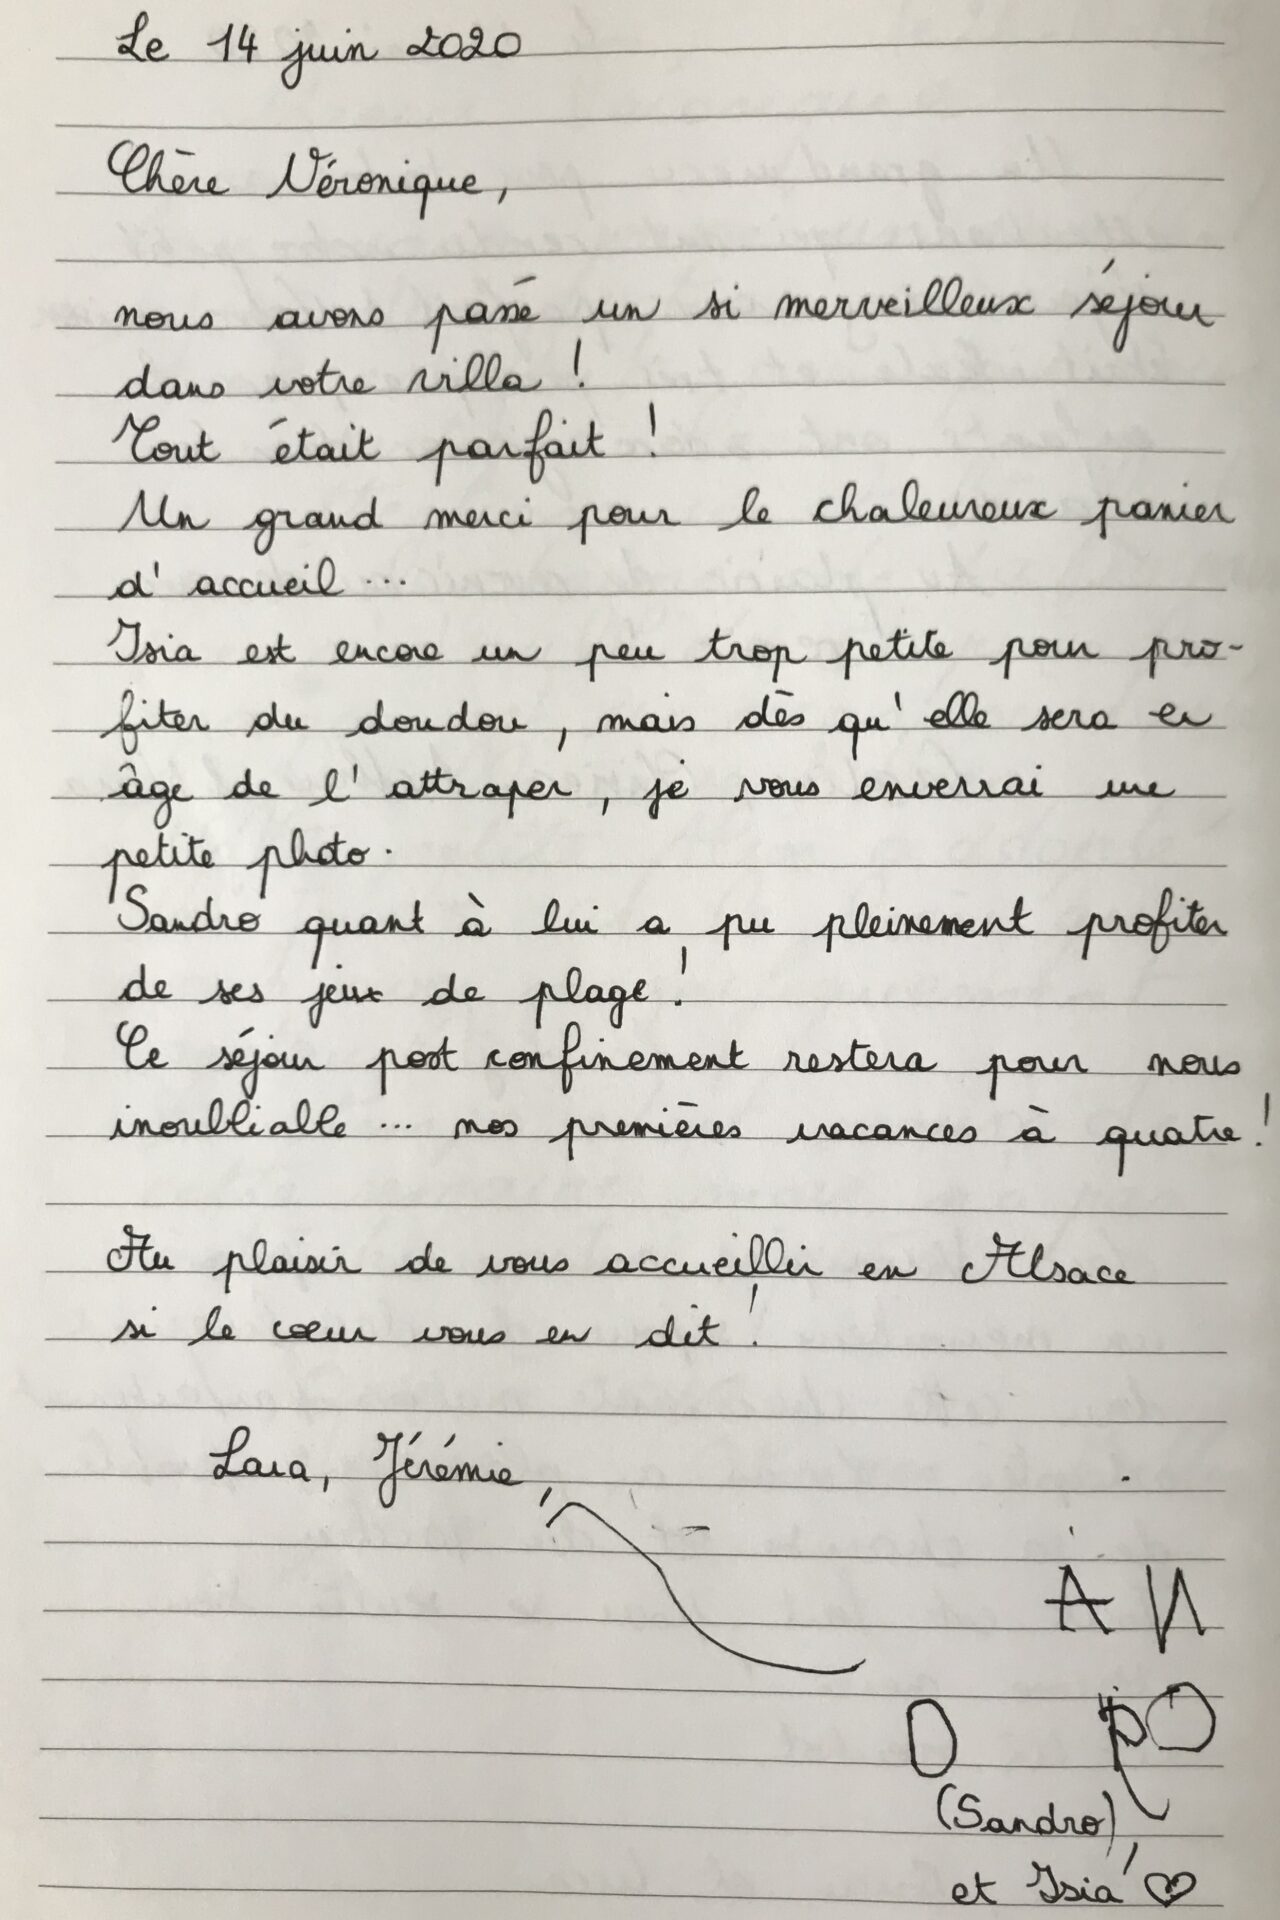 Le 14 juin 2020
Chère Véronique,
nous avons passé un si merveilleux séjour
dans votre villa !
Tout était parfait !
Un grand merci pour le chaleureux panier
d'accueil ...
Isia est encore un peu trop petite pour pro-
fiter du doudou, mais dès qu'elle sera en
âge de l'attraper, je vous enverrai une
petite photo.
Sandro quant à lui a pu pleinement profiter
de ses jeux de plage !
Ce séjour post confinement restera pour nous
inoubliable ... nos premières vacances à quatre !
Au plaisir de vous accueillir en Alsace
si le cœur vous en dit !
Lara, Jérémie,
A N
O
(Sandro),
et Isia ♡